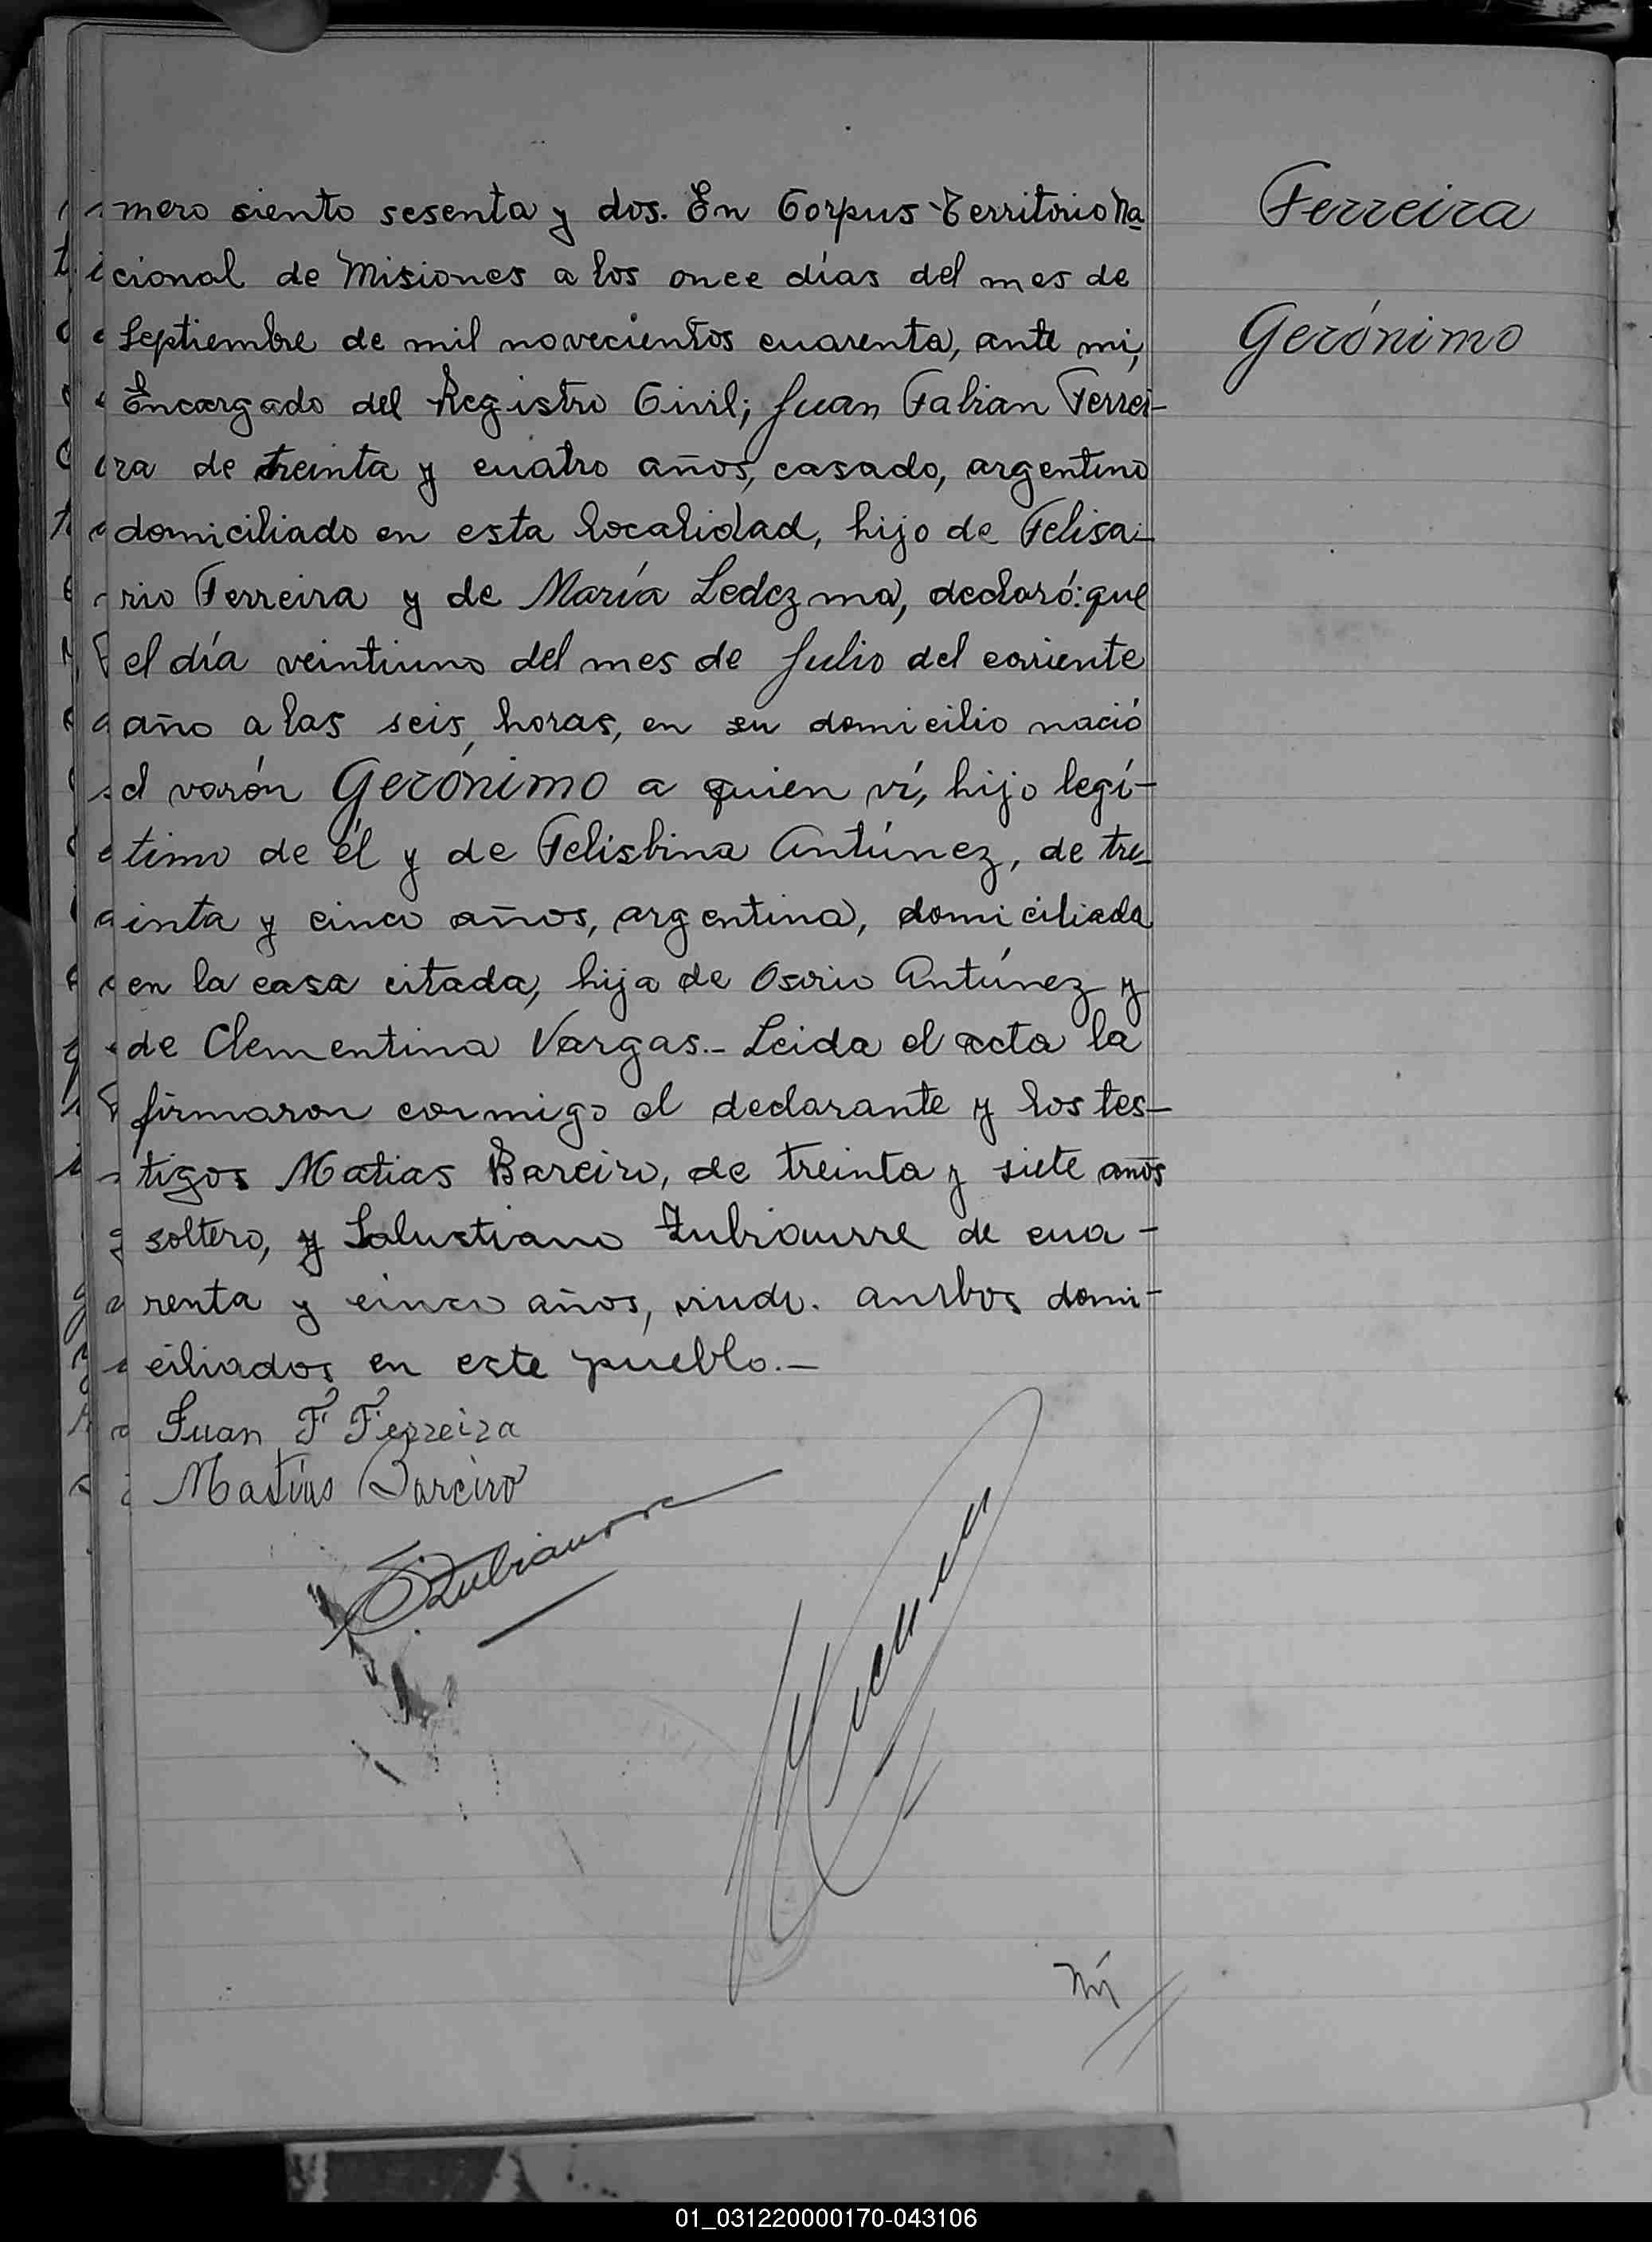 mero siento sesenta y dos. En Corpus Territorio Na
cional de Misiones a los once días del mes de
Septiembre de mil novecientos cuarenta, ante mi,
Encargado del Registro Civil; Juan Fabian Ferrei-
ra de treinta y cuatro años, casado, argentino
domiciliado en esta localidad, hijo de Felisa-
rio Ferreira y de María Ledezma, declaró: que
el día veintiuno del mes de Julio del corriente
año a las seis, horas, en su domicilio nació
el varón Gerónimo a quien ví, hijo legí-
timo de él y de Felisbina Antúnez, de tre-
inta y cinco años, argentina, domiciliada
en la casa citada, hija de Osorio Antúnez y
de Clementina Vargas.- Leida el acta la
firmaron conmigo el declarante y los tes-
tigos Matias Bareiro, de treinta y siete años
soltero, y Salustiano Zubiaurre de cua-
renta y cinco años, viudo. ambos domi-
ciliados en este pueblo.-
Juan F Ferreira
Matias Bareiro
S Zubiaurre
Ferreira
Gerónimo
01_031220000170-043106